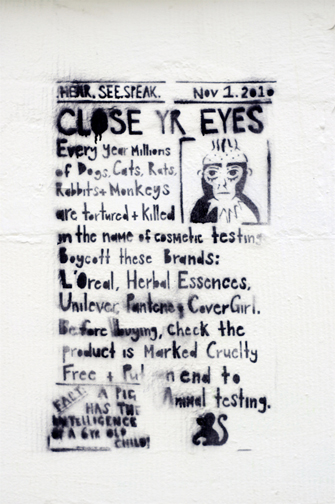 HEAR. SEE. SPEAK. Nov 1. 2010
CLOSE YR EYES
Every year Millions
of Dogs, Cats, Rats,
Rabbits + Monkeys
are tortured + killed
in the name of cosmetic testing
Boycott these Brands:
L'Oreal, Herbal Essences,
Unilever, Pantene, CoverGirl.
Before buying, check the
product is Marked Cruelty
Free + Put n end to
Animal testing.
FACT: A PIG
HAS THE
INTELLIGENCE
OF A 6YR OLD
CHILD!